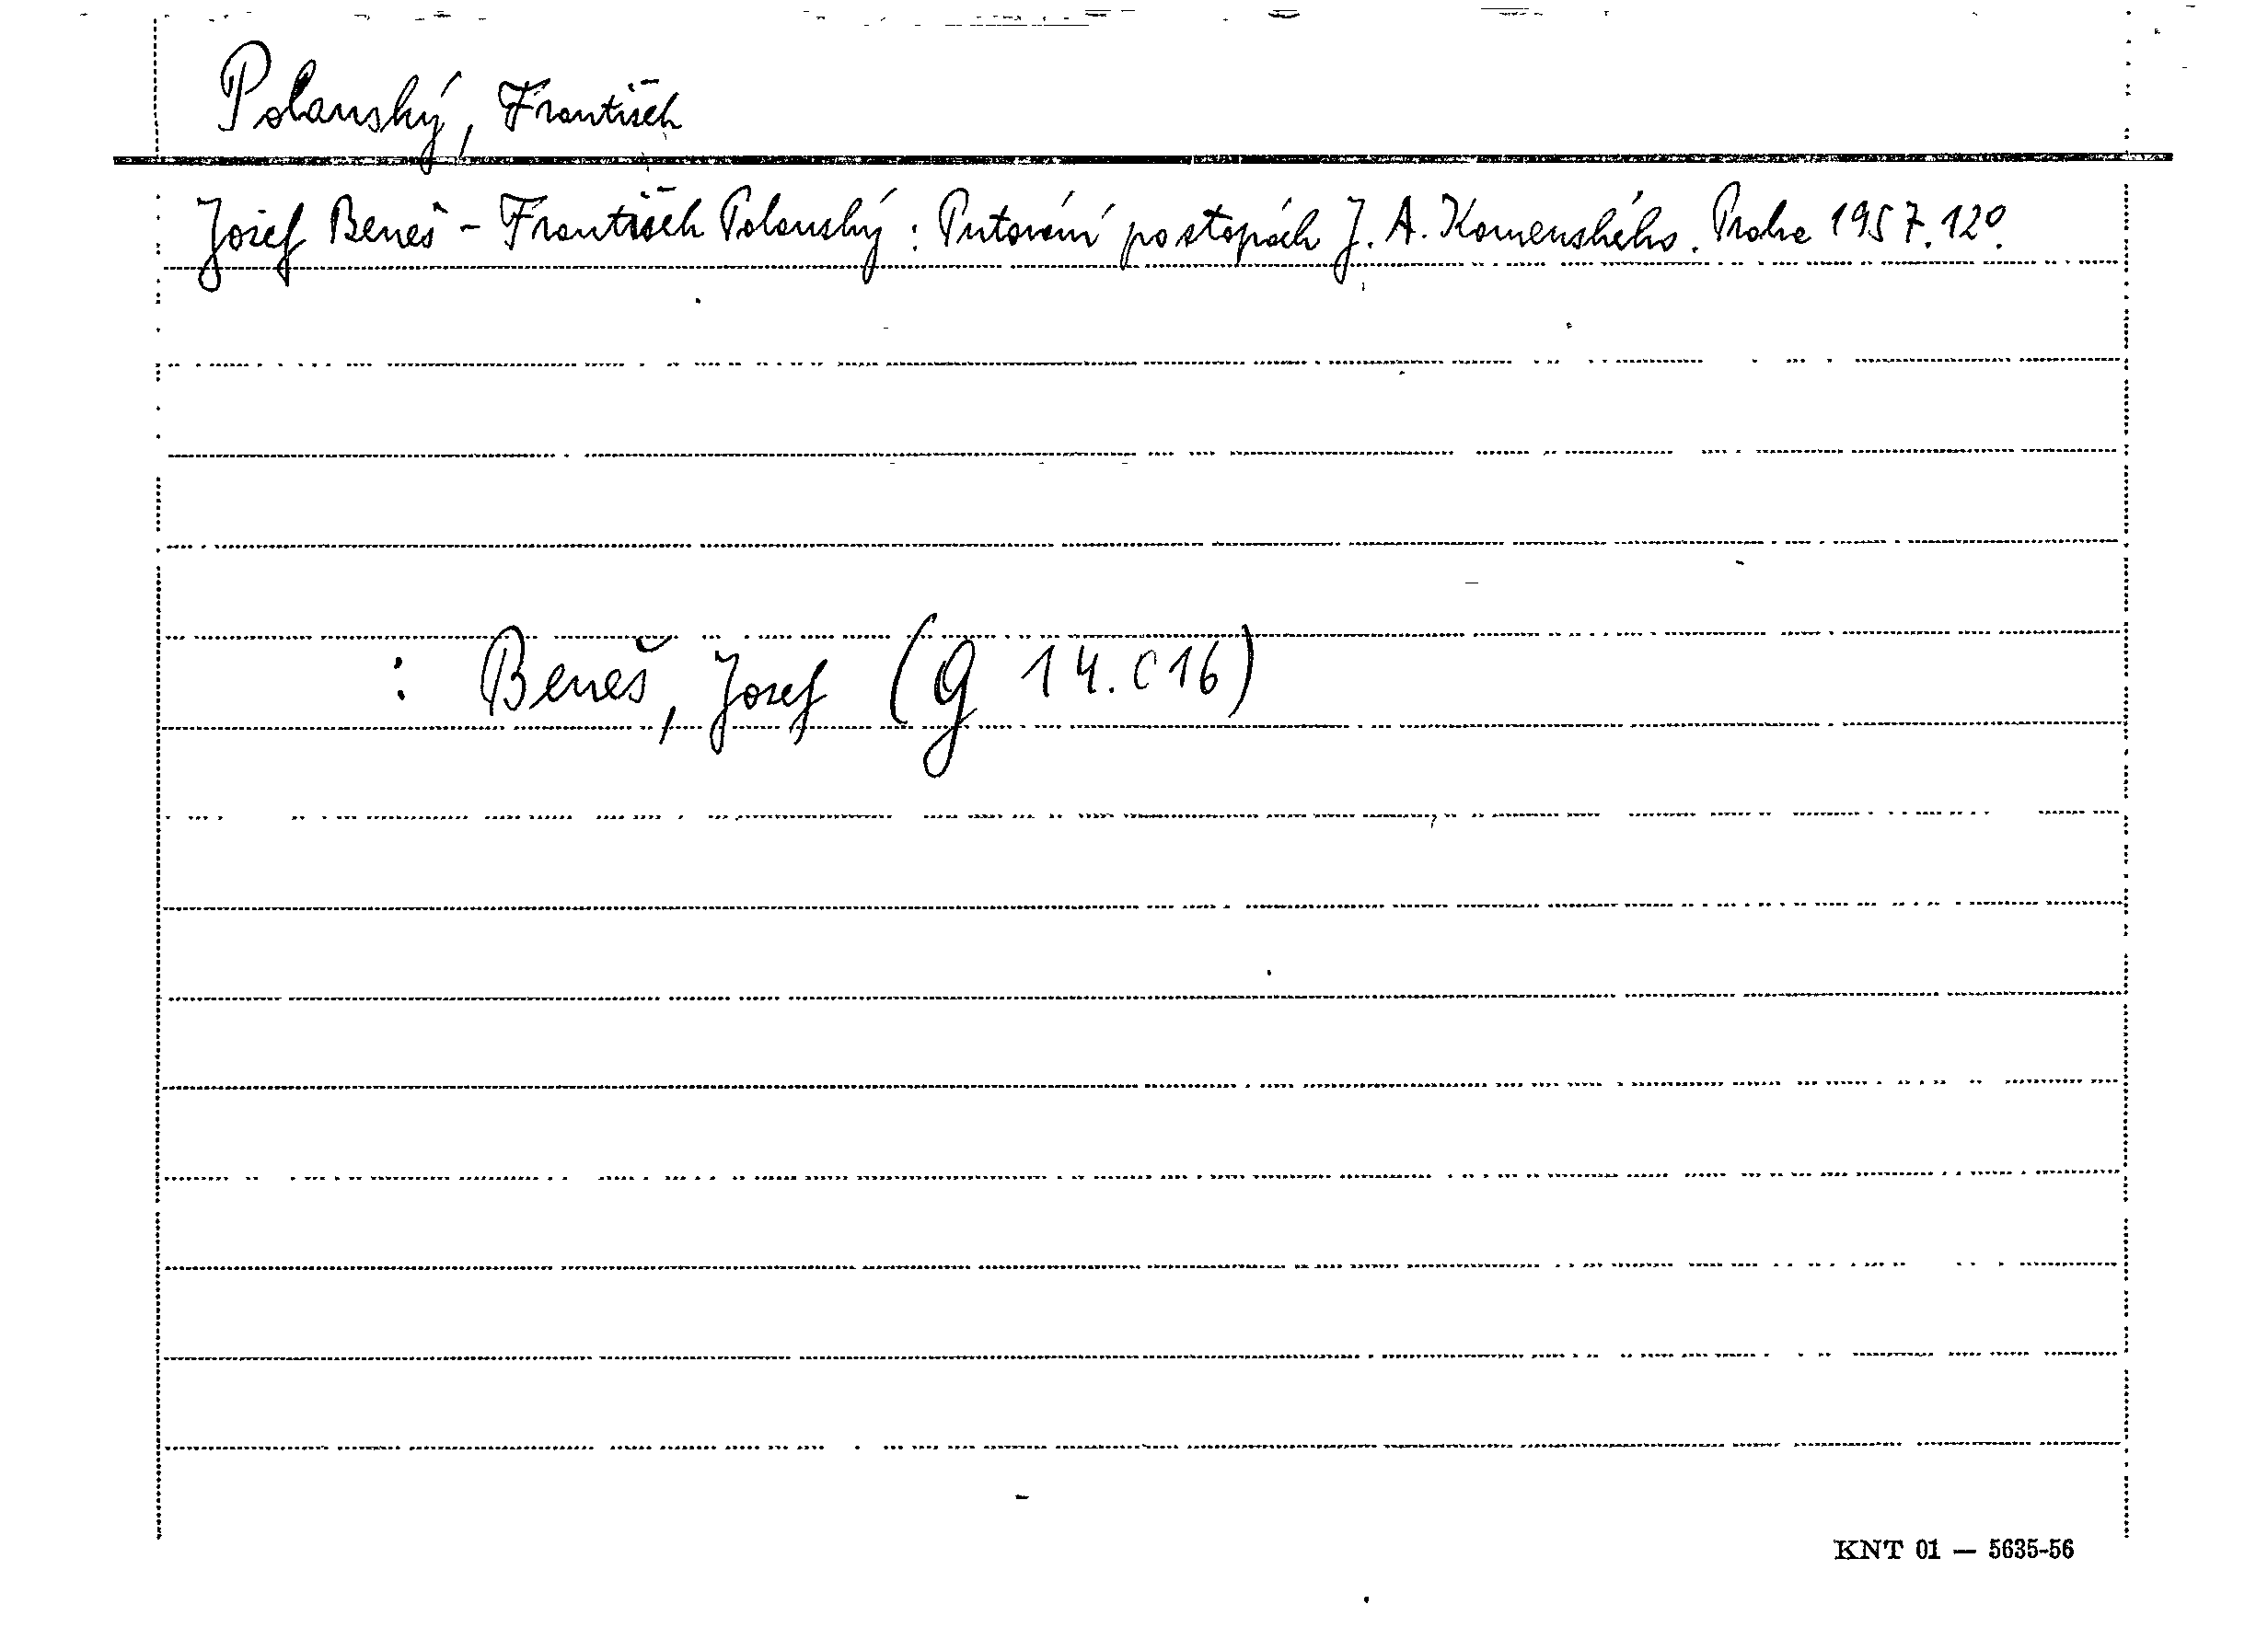 Polanský, František
Josef Beneš - František Polanský: Putování po stopách J. A. Komenského. Praha 1957. 12°.
: Beneš, Josef (g 14. C 16)
KNT 01 — 5635-56